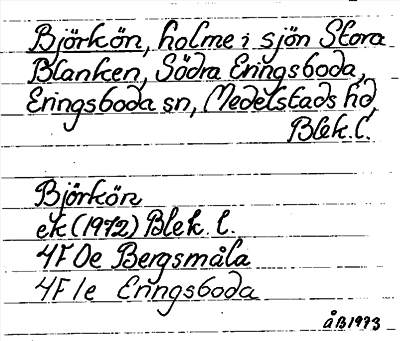 Björkön, holme i sjön Stora
Blanken, Södra Eringsboda,
Eringsboda sn, Medelstads hd,
Blek. l.
Björkön
ek (1972) Blek. l.
4F 0e Bergsmåla
4F 1e Eringsboda
åB1973